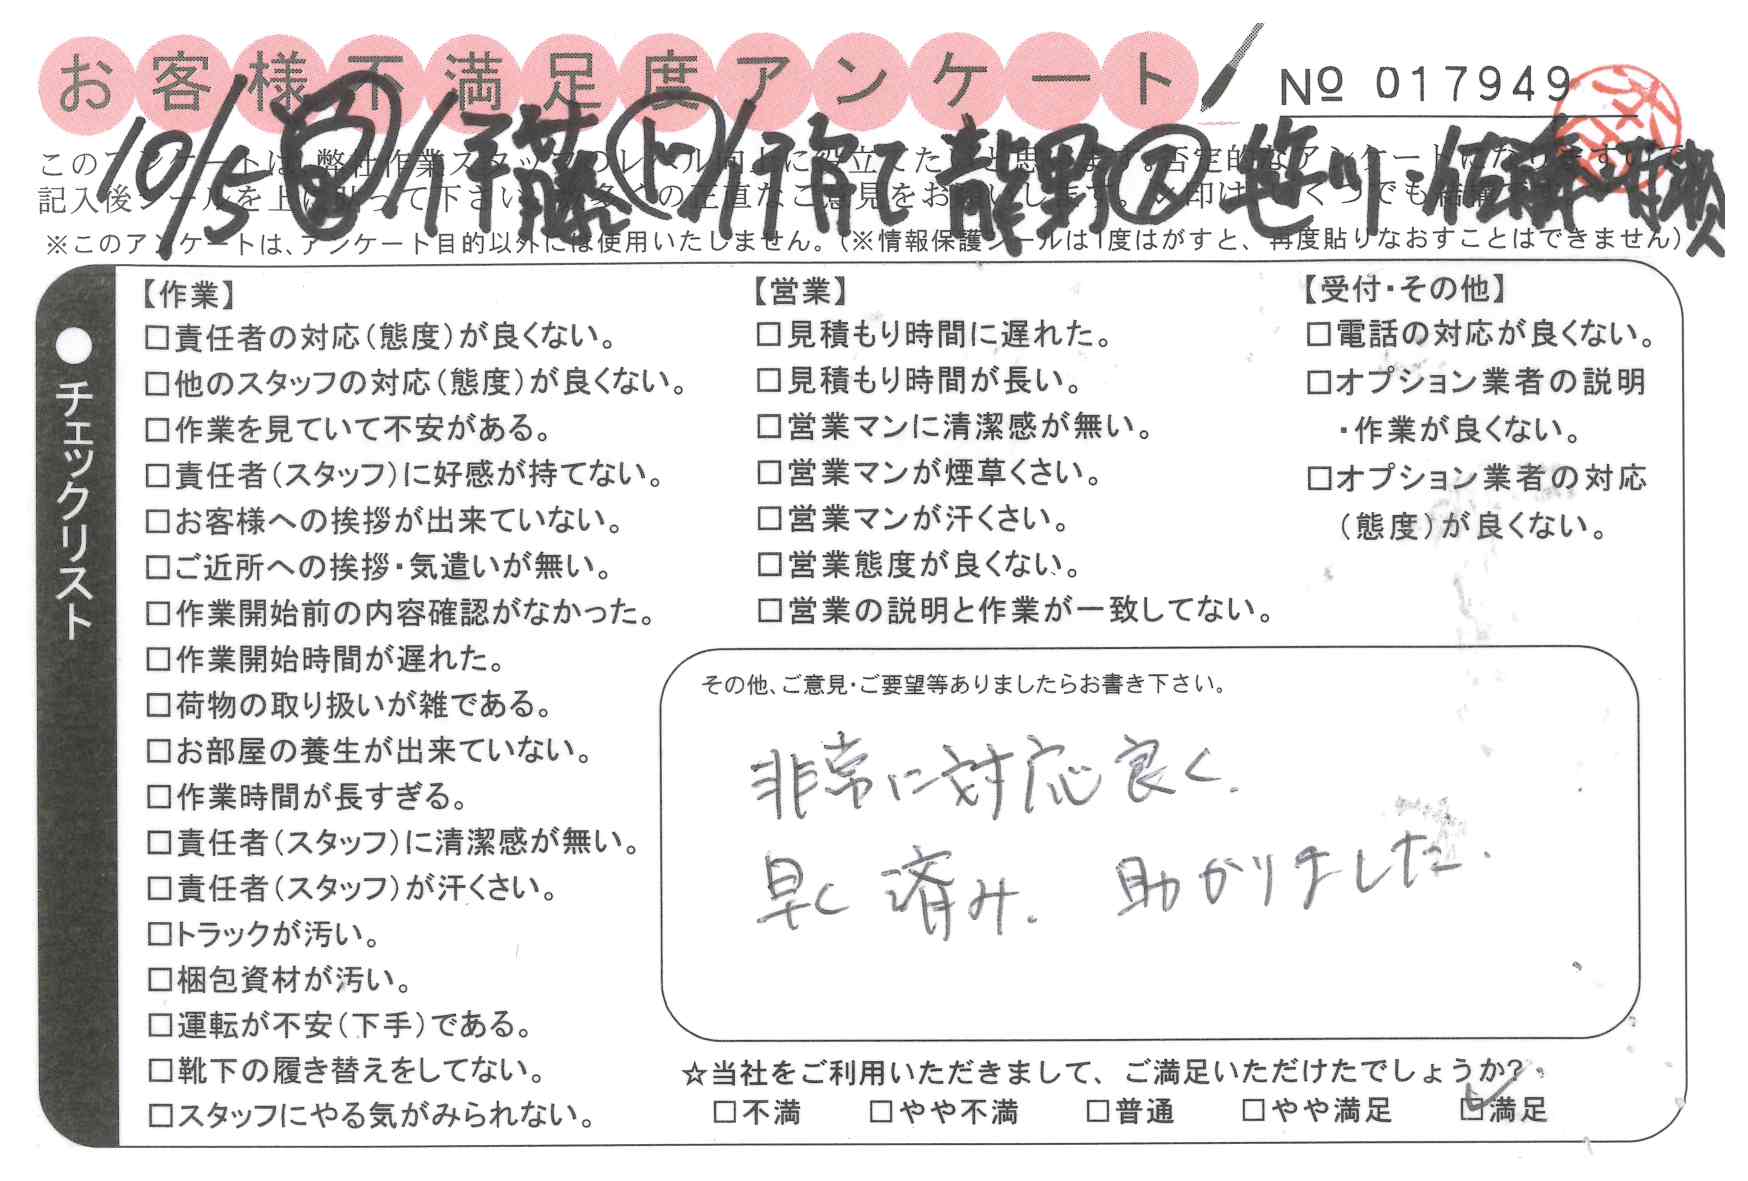 お客様不満足度アンケート
№ 017949
10/5 /伊藤 ト/ 龍野 ス 笹川
このアンケートは、弊社作業スタッフのレベル向上に役立てたいと思います。否定的なアンケートになりますので
記入後シールを上に貼って下さい。
※このアンケートは、アンケート目的以外には使用いたしません。(※情報保護シールは1度はがすと、再度貼りなおすことはできません)
●チェックリスト
【作業】
□責任者の対応(態度)が良くない。
□他のスタッフの対応(態度)が良くない。
□作業を見ていて不安がある。
□責任者(スタッフ)に好感が持てない。
□お客様への挨拶が出来ていない。
□ご近所への挨拶・気遣いが無い。
□作業開始前の内容確認がなかった。
□作業開始時間が遅れた。
□荷物の取り扱いが雑である。
□お部屋の養生が出来ていない。
□作業時間が長すぎる。
□責任者(スタッフ)に清潔感が無い。
□責任者(スタッフ)が汗くさい。
□トラックが汚い。
□梱包資材が汚い。
□運転が不安(下手)である。
□靴下の履き替えをしてない。
□スタッフにやる気がみられない。
【営業】
□見積もり時間に遅れた。
□見積もり時間が長い。
□営業マンに清潔感が無い。
□営業マンが煙草くさい。
□営業マンが汗くさい。
□営業態度が良くない。
□営業の説明と作業が一致してない。
【受付・その他】
□電話の対応が良くない。
□オプション業者の説明
・作業が良くない。
□オプション業者の対応
(態度)が良くない。
その他、ご意見・ご要望等ありましたらお書き下さい。
非常に対応良く.
早く済み. 助かりました.
☆当社をご利用いただきまして、ご満足いただけたでしょうか?
□不満 □やや不満 □普通 □やや満足 ☑満足